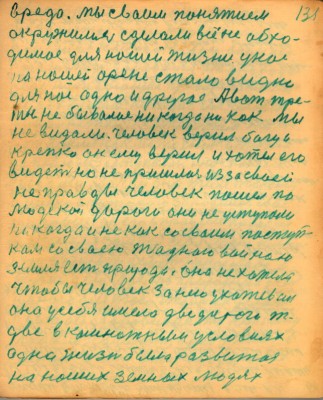 131
вредо. Мы своим понятием
окружились сделали ей необхо-
димое для нашей жизни у нас
на нашей арене стало видно
для нас одно и другое А вот тре-
тье не бывалое никогда никак. Мы
не видали. Человек верил богу и
крепко он ему верил и хотел его
видеть но не пришлось из за своей
не правды человек пошел по
людской дороги они не уступали
никогда и не как со своим поступ-
ком со своею жадною войною
земля есть природа. она не хотела
чтобы человек за нею ухаживал
она у себя имела две дороги
две в климатных условиях
одна жизнь была развитая
на наших земных людях